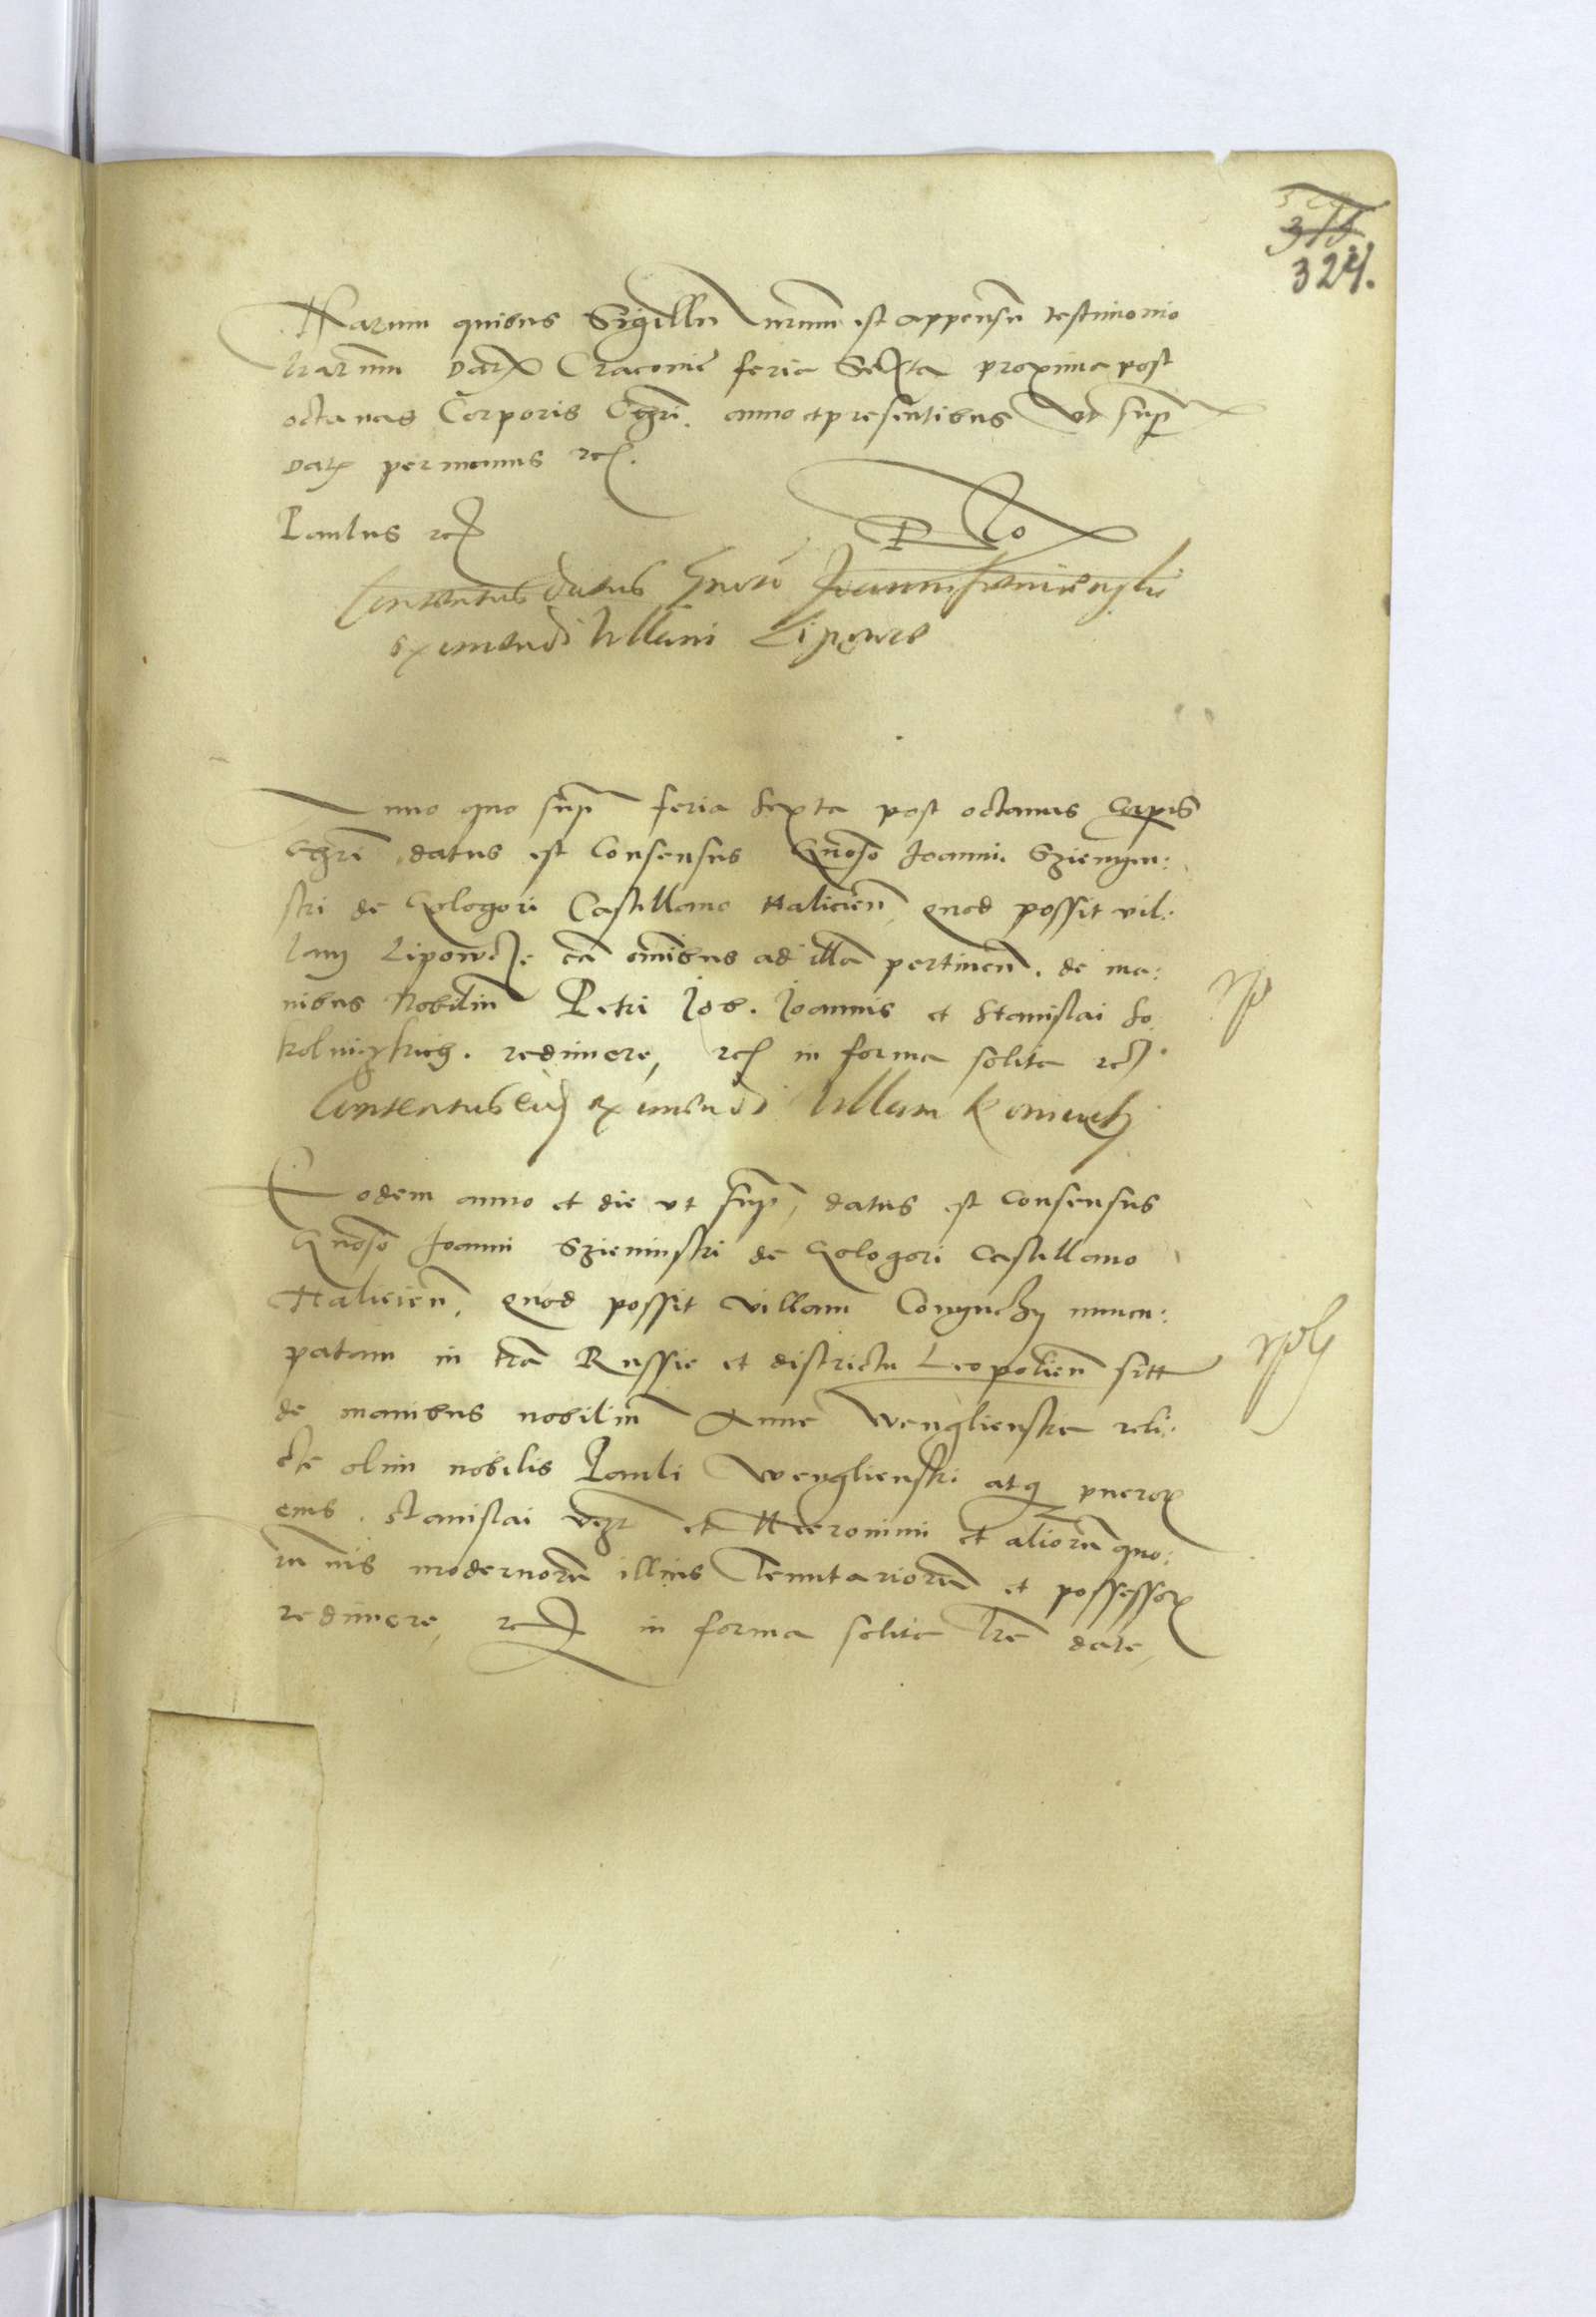 324.
Harum quibus Sigillū nrum est appensū testimonio
lrarum Datx Cracovie feria Sexta proxima post
octavas Corporis Chri. anno et presentibus ut supr
Datx per manus rc.
Paulus rc
Consensus datus Gnoso Joanni Sieniensky
eximendi Villam Lipowe
Anno quo supr feria sexta post octavas Corpis
Chri datus est Consensus Gnoso Joanni Szienyen:
ski de Gologori Castellano Halicień quod possit vil:
lam Lipowcze cū omibus ad illā pertineñ. de ma:
nibus Nobiliū Petri Job. Joannis et Stanislai So
kolniczkich. redimere, rc in forma solita rc.
Consensus eidē eximendi Villam Koniuchy
Eodem anno et die ut supr, datus est Consensus
Gnoso Joanni Szieninski de Gologori Castellano
Halicień, quod possit villam Conyuchy nuncu:
patam in tra Russie et districtu Leopolień sitt
de manibus nobiliū Anne Wenglienska reli:
cte olim nobilis Pauli Wenglienski atq puerorx
eius. Stanislai et Hieronimi et aliorū quo:
rūvis modernorū illius Tenutariorū et possessorx
redimere, rc in forma solita lre date,